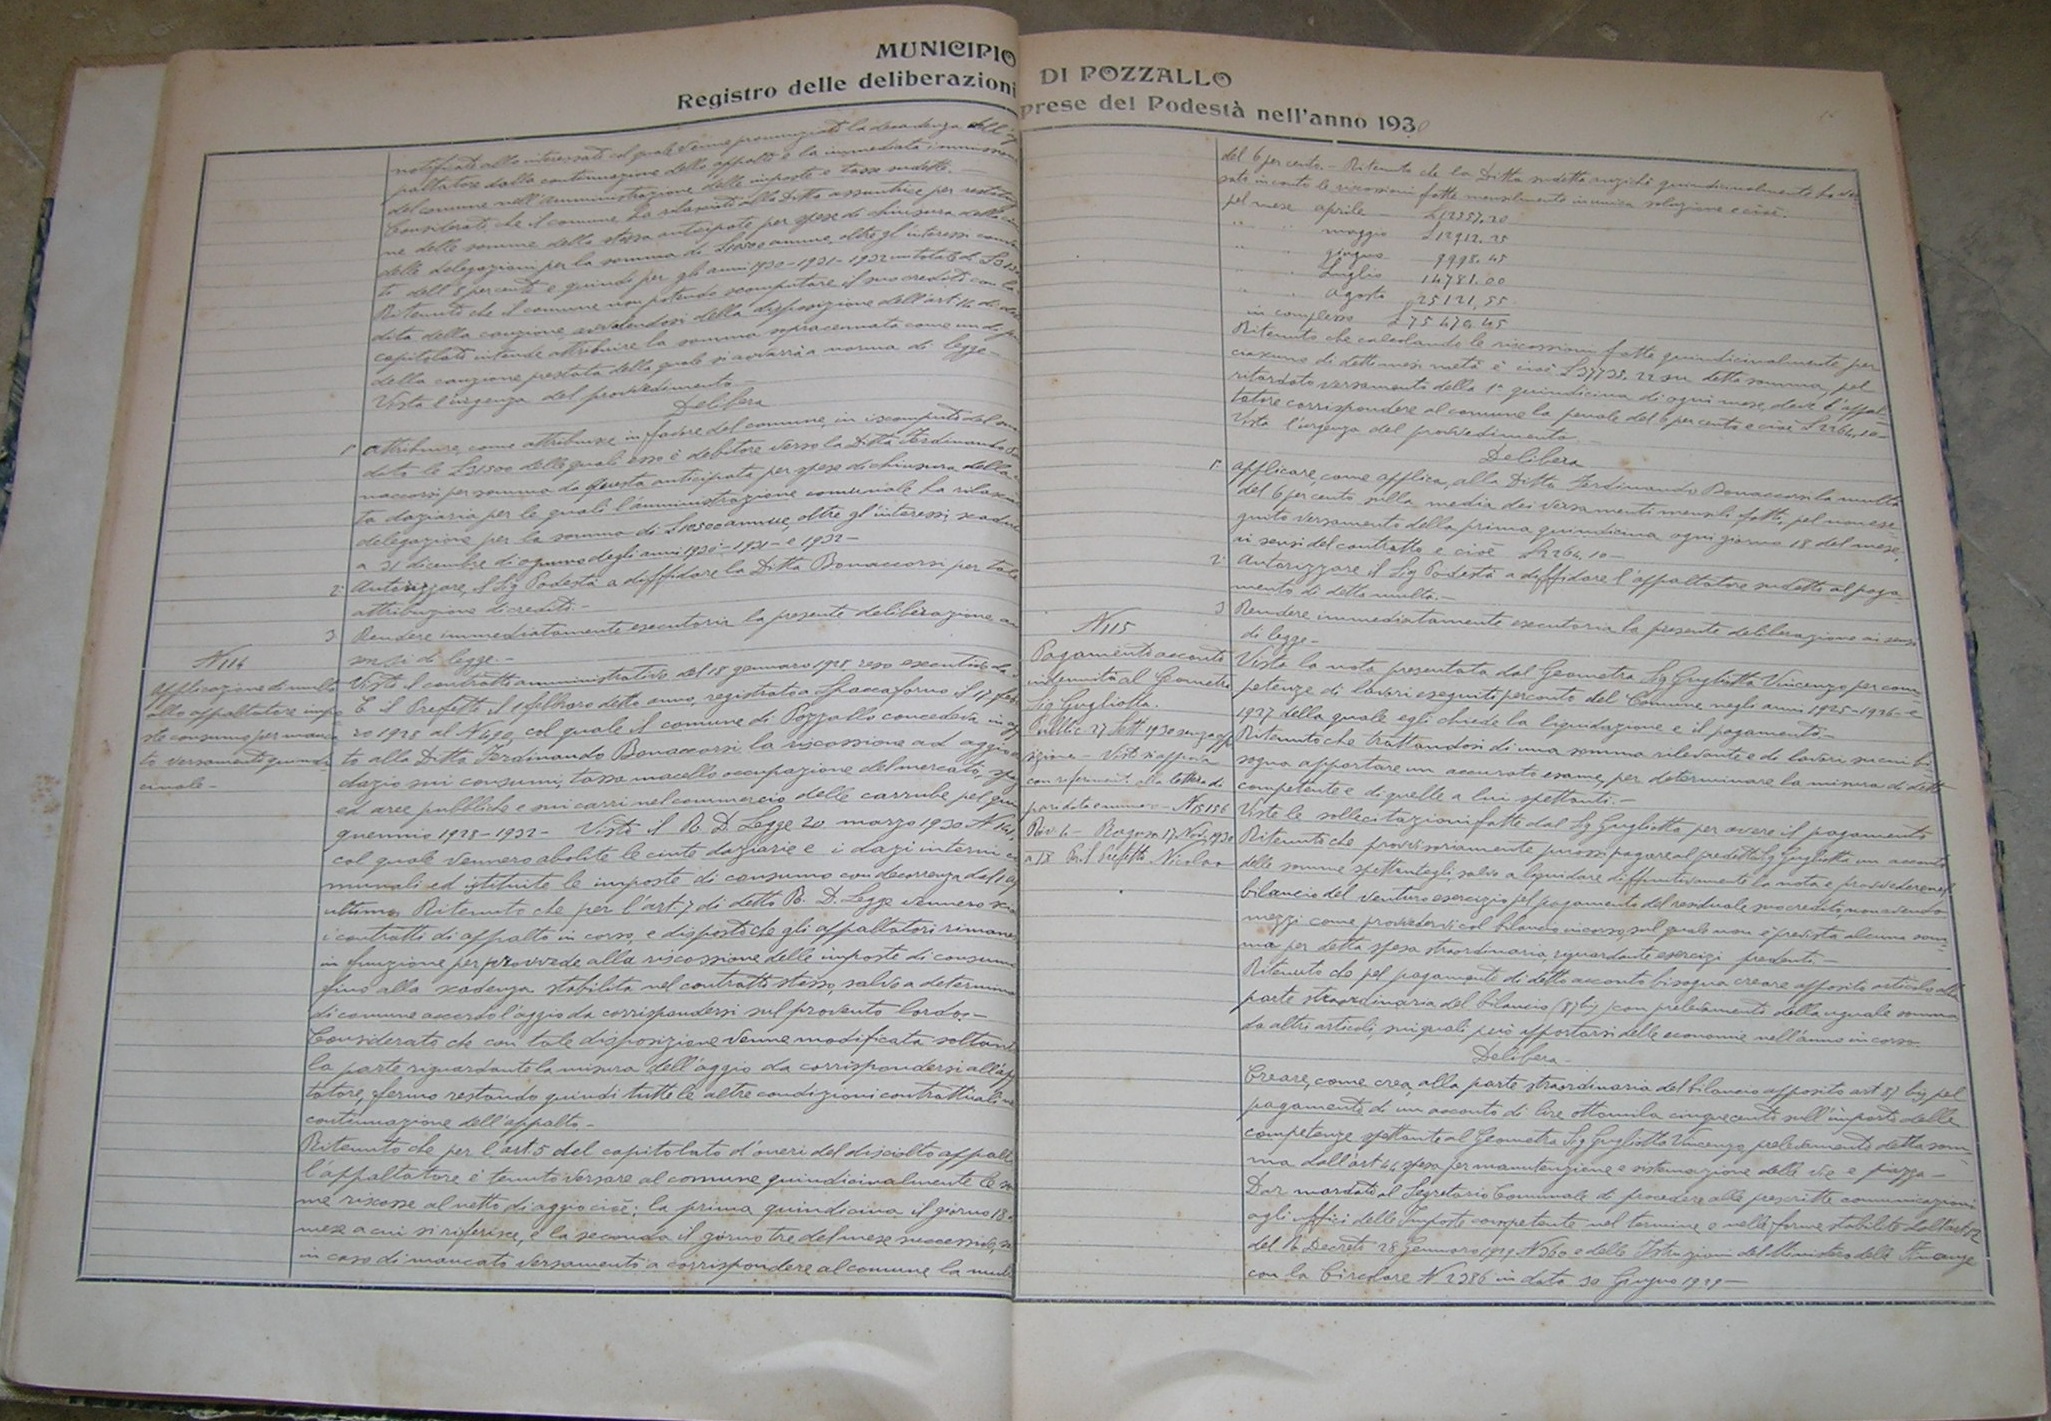 MUNICIPIO DI POZZALLO
Registro delle deliberazioni prese del Podestà nell'anno 1930
notificato allo interessato col quale venne pronunziata la decadenza dell'
paltatore dalla continuazione dello appalto e la immediata immissione
del comune nell'amministrazione delle imposte e tasse suddette.—
Considerato, che il comune ha rilasciato alla Ditta assuntrice per
ne delle somme dalla stessa anticipate per spese di chiusura della
delle delegazioni per la somma di L10500 annue, oltre gl'interessi
to dell'8 per cento e quindi per gli anni 1930-1931-1932 in totale di
Ritenuto che il comune non potendo scomputare il suo credito con la
dita della cauzione, avvalendosi della disposizione dell'art. 14 di
capitolato intende attribuire la somma sopracennata come un di
della cauzione prestata della quale si avvarrà a norma di legge—
Vista l'urgenza del provvedimento—
Delibera
1° Attribuire, come attribuisce in favore del comune, in iscomputo del suo
dato le L31500 delle quali esso è debitore verso la Ditta Ferdinando Bo
naccorsi per somma da questa anticipata per spese di chiusura della
ta daziaria per le quali l'amministrazione comunale ha rilascia
delegazione per la somma di L10500 annue, oltre gl'interessi,
a 31 dicembre di ognuno degli anni 1930-1931- e 1932—
2° Autorizzare il Sig Podestà a diffidare la Ditta Bonaccorsi per tale
attribuzione di credito.—
3 Rendere immediatamente esecutoria la presente deliberazione
sensi di legge.—
N 114
Applicazione di multa
allo appaltatore impo
ste consumo per manca
to versamento quindi
cinale—
Visto il contratto amministrativo del 18 gennaro 1928 reso esecutivo da S.
E. il Prefetto il 1 febbraro detto anno, registrato a Spaccaforno il 17
ro 1928 al N col quale il comune di Pozzallo concedeva in
to alla Ditta Ferdinando Bonaccorsi la riscossione ad aggio
dazio sui consumi, tassa macello occupazione del mercato,
ed aree pubbliche e sui carri nel commercio delle carrube pel quin
quennio 1928-1932- Visto il R. D. Legge 20 marzo 1930 N 141,
col quale vennero abolite le cinte daziarie e i dazi interni co
munali ed istituite le imposte di consumo con decorrenza dal
ultimo, Ritenuto che per l'art. 7 di detto R. D. Legge vennero
i contratti di appalto in corso, e disposto che gli appaltatori rimane
in funzione per provvede alla riscossione delle imposte di consumo
fino alla scadenza stabilita nel contratto stesso, salvo a determina
di comune accordo l'aggio da corrispondersi sul provento lordo.—
Considerato che con tale disposizione venne modificata soltanto
la parte riguardante la misura dell'aggio da corrispondersi all'app
tatore, fermo restando quindi tutte le altre condizioni contrattuali
continuazione dell'appalto—
Ritenuto che per l'art. 5 del capitolato d'oneri del disciolto appalto
l'appaltatore è tenuto versare al comune quindicinalmente le som
me riscosse al netto di aggio cioè: la prima quindicina il giorno 18
mese a cui si riferisce, e la seconda il giorno tre del mese successivo,
in caso di mancato versamento a corrispondere al comune la multa
del 6 per cento.— Ritenuto che la Ditta suddetta anziché quindicinalmente ha ver-
sato in conto le riscossioni fatte mensilmente in unica soluzione e cioè:
pel mese aprile — L12357.20
" " maggio L12912.25
" " giugno 9998.45
" " Luglio 14781.00
" " agosto 25121,55
in complesso L75470.45
Ritenuto che calcolando le riscossioni fatte quindicinalmente per
ciascuno di detti mesi metà e cioè L37735.22 su detta somma, pel
ritardato versamento della 1ª quindicina di ogni mese, deve l'appal-
tatore corrispondere al comune la penale del 6 per cento e cioè L2264,10—
Vista l'urgenza del provvedimento—
Delibera
1° Applicare, come applica, alla Ditta Ferdinando Bonaccorsi la multa
del 6 per cento sulla media dei versamenti mensili fatti, pel non ese-
guito versamento della prima quindicina ogni giorno 18 del mese,
ai sensi del contratto e cioè L2264.10—
2° Autorizzare il Sig Podestà a diffidare l'appaltatore suddetto al paga-
mento di detta multa.—
3 Rendere immediatamente esecutoria la presente deliberazione ai sensi
di legge—
N 115
Pagamento acconto
indennità al Geometra
Sig Gugliotta.
Pubblic. 27 Sett 1930 senza oppo
sizione— Visto si approva
con riferimento alla lettera di
pari data e numero— N 15156
Div. 4— Ragusa 17 Nov. 1930
a IX P. il Prefetto Nicolao
Vista la nota presentata dal Geometra Sig Gugliotta Vincenzo per com-
petenze di lavori eseguiti per conto del Comune negli anni 1925-1926- e
1927 della quale egli chiede la liquidazione e il pagamento—
Ritenuto che trattandosi di una somma rilevante e di lavori su cui bi
sogna apportare un accurato esame, per determinare la misura di dette
competente e di quelle a lui spettanti.—
Viste le sollecitazioni fatte dal Sig Gugliotta per avere il pagamento
Ritenuto che provvisoriamente puossi pagare al predetto Sig Gugliotta un acconto
delle somme spettantegli, salvo a liquidare diffinitivamente la nota e provvedere nel
bilancio del venturo esercizio pel pagamento del residuale suo credito, non avendo
mezzi come provvedervi col bilancio in corso, sul quale non è prevista alcuna som-
ma per detta spesa straordinaria riguardante esercizi precedenti—
Ritenuto che pel pagamento di detto acconto bisogna creare apposito articolo alla
parte straordinaria del bilancio (87 bis) con prelevamento della uguale somma
da altri articoli, sui quali può apportarsi delle economie nell'anno in corso
Delibera—
Creare, come crea, alla parte straordinaria del bilancio apposito art 87 bis pel
pagamento di un acconto di lire ottomila cinquecento sull'importo delle
competenze spettante al Geometra Sig Gugliotta Vincenzo, prelevamento detta som-
ma dall'art 44 spesa per manutenzione e sistemazione delle vie e piazza—
Dar mandato al Segretario Comunale di procedere alle prescritte comunicazioni
agli uffici delle Imposte competente nel termine e nelle forme stabilite dall'art 12
del R. Decreto 28 Gennaro 1929 N 360 e delle Istruzioni del Ministero delle Finanze
con la Circolare N 2386 in data 30 Giugno 1929—